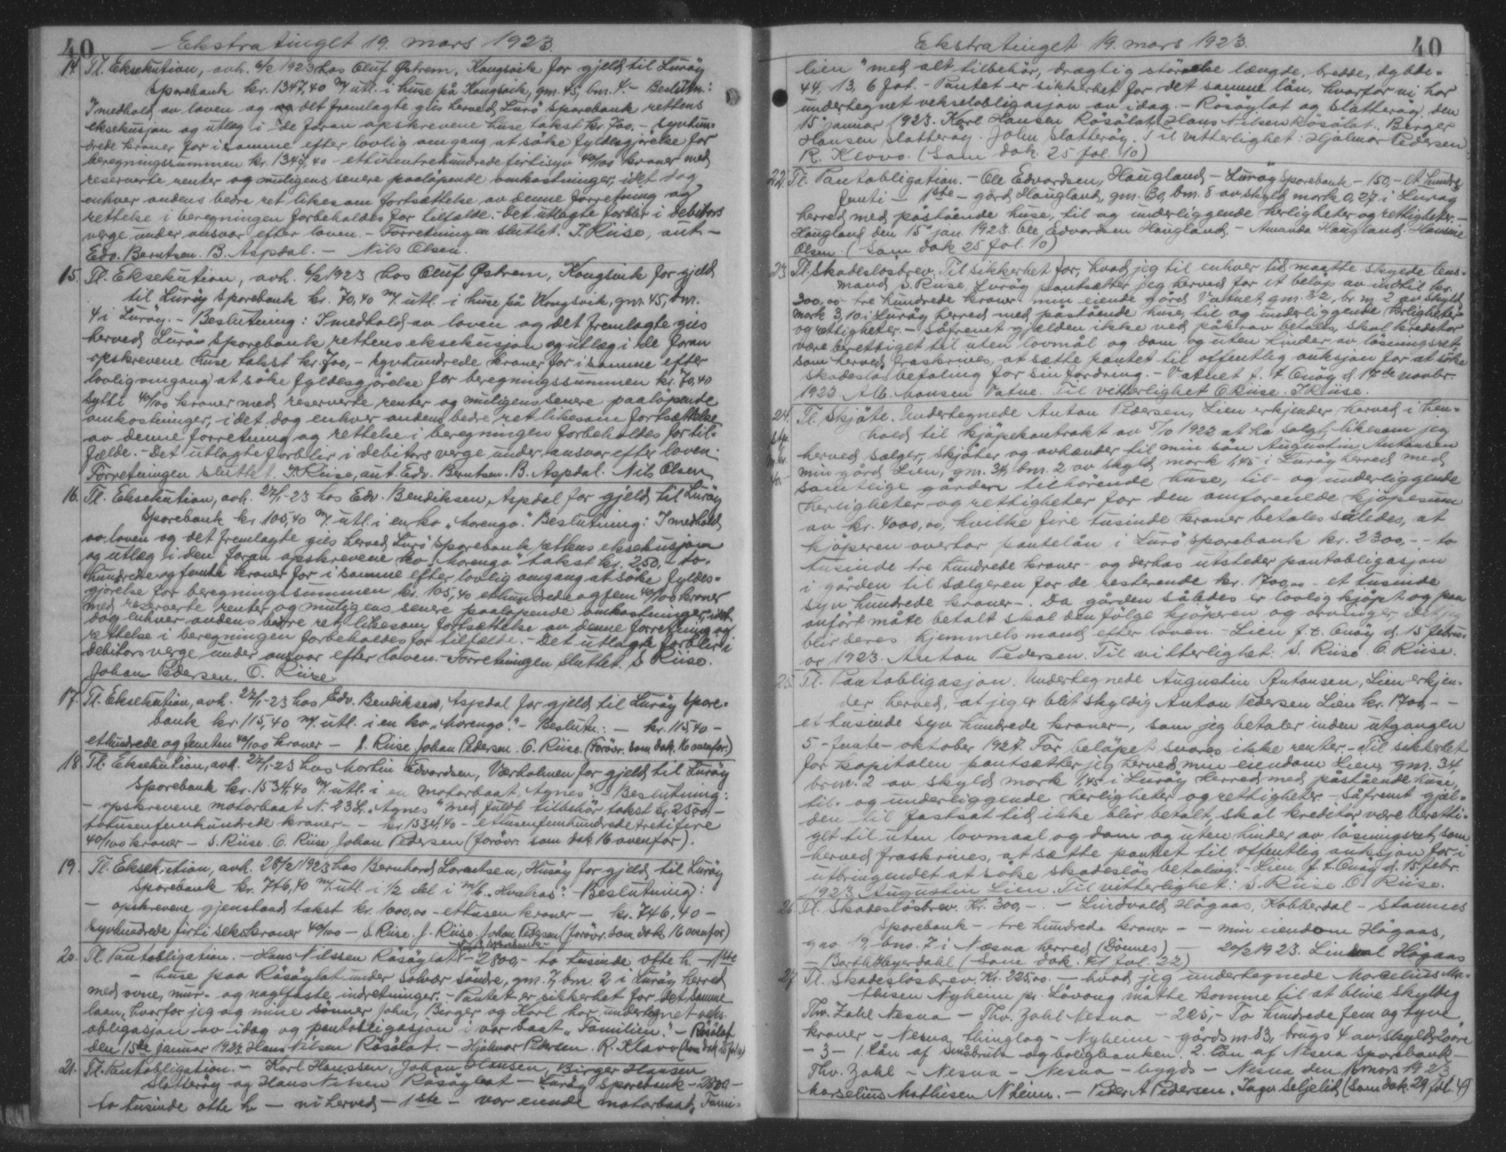 40
Ekstratinget 19. mars 1923.
14. Tl. Eksekution, avh. 6/2 1923 hos Oluf Østrem, Kongsvik for gjeld til Lurøy
Sparebank kr. 1347,40 m/ utl. i huse på Kongsvik, gm. 45, bm. 4. - Beslutn:
I medhold av loven og det fremlagte gis herved Lurø sparebank rettens
eksekusjon og utlæg i de foran opskrevene huse takst kr. 700,- syvhun-
drede kroner for i samme efter lovlig omgang at söke fyldesgjörelse for
beregningssummen kr. 1347,40 ettusentrehundredefertisyv 40/100 kroner med
reserverte renter og muligens senere paalöpende omkostninger, idet dog
enhver andens bedre ret likesom fortsættelse av denne forretning og
rettelse i beregningen forbeholdes for tilfælde. - Det utlagte forblir i debitors
verge under ansvar efter loven. - Forretningen sluttet. S. Riise, aut. -
Edv. Berntsen. B. Aspdal. - Nils Olsen.
15. Tl. Eksekution, avh. 6/2 1923 hos Oluf Østrem, Kongsvik for gjeld
til Lurøy sparebank kr. 70,40 m/ utl. i huse på Kongsvik, gm. 45, bm.
4 i Lurøy. - Beslutning: I medhold av loven og det fremlagte gis
herved Lurø sparebank rettens eksekusjon og utlæg i de foran
opskrevene huse takst kr. 700,- syvhundrede kroner for i samme efter
lovlig omgang at söke fyldesgjörelse for beregningssummen kr. 70,40
sytti 40/100 kroner med reserverte renter og muligens senere paalöpende
omkostninger, idet dog enhver andens bedre ret likesom fortsættelse
av denne forretning og rettelse i beregningen forbeholdes for til-
fælde. - Det utlagte forblir i debitors verge under ansvar efter loven.
Forretningen sluttet. S. Riise, aut. Edv. Berntsen. B. Aspdal. Nils Olsen
16. Tl. Eksekution, avh. 22/1-23 hos Edv. Bendiksen, Aspdal for gjeld til Lurøy
Sparebank kr. 105,40 m/ utl. i en ko "Morengo". Beslutning: I medhold
av loven og det fremlagte gis herved Lurö sparebank rettens eksekusjon
og utlæg i den foran opskrevene ko "Morengo" takst kr. 250,- to-
hundrede og femti kroner for i samme efter lovlig omgang at söke fyldes-
gjörelse for beregningssummen kr. 105,40 ethundrede og fem 40/100 kroner
med reserverte renter og muligens senere paalöpende omkostninger, idet
dog enhver andens bedre ret likesom fortsættelse av denne forretning og
rettelse i beregningen forbeholdes for tilfælde. - Det utlagte forblir i
debitors verge under ansvar efter loven. - Forretningen sluttet. S. Riise.
Johan Pedersen. O. Riise
17. Tl. Eksekution, avh. 22/1-23 hos Edv. Bendiksen, Aspdal for gjeld til Lurøy Spare-
bank kr. 115,40 m/ utl. i en ko "Morengo". - Beslutn: - kr. 115,40 -
ethundrede og femten 40/100 kroner - S. Riise. Johan Pedersen. O. Riise. (Forövr. som dok. 16 ovenfor.)
18. Tl. Eksekution, avh. 22/1-23 hos Martin Edvardsen, Værholmen for gjeld til Lurøy
Sparebank kr. 1534,40 m/ utl. i en motorbaat "Agnes". Beslutning:
- opskrevene motorbaat N. 23 L. "Agnes" med fuldt tilbehör takst kr. 2500,-
totusenfemhundrede kroner - kr. 1534,40 - ettusenfemhundredetretifire
40/100 kroner - S. Riise. O. Riise, Johan Pedersen (forövr. som dok 16 ovenfor).
19. Tl. Eksekution, avh. 28/2 1923 hos Bernhard Lorentsen, Husøy for gjeld til Lurøy
Sparebank kr. 746,40 m/ utl. i 1/2 del i m/k. "Havhas". Beslutning:
- opskrevene gjenstand takst kr. 1000,00 - ettusen kroner - kr. 746,40 -
syvhundrede firti seks kroner 40/100 - S. Riise. J. Riise. Johan Petersen (forövr. som dok. 16 ovenfor)
20. Tl. Pantobligation. - Hans Nilssen Rösöylat - 2800,- to tusinde otte h - 1ste
- huse paa Rösöylat under Solvær söndre, gm. 7, bm. 2 i Lurøy herred
med ovne, mur- og naglfaste indretninger. - Pantet er sikkerhet for det samme
laan, hvorfor jeg og mine sönner John, Birger og Karl har undertegnet veks-
obligasjon av idag og pantobligasjon i vor baat "Familien". - Rösölat
den 15de januar 1923. Hans Nilsen Rösölat. - Hjalmar Pedersen R. Klavo (som dok 25 fol 10)
21. Tl. Pantobligation. - Karl Hanssen, Johan Hansen, Birger Hansen
Slatteröy og Hans Nilsen Rösöylat - Lurøy Sparebank - 2800 -
to tusinde otte h - vi herved - 1ste - vor eiende motorbaat "Fami-
40
Ekstratinget 19. mars 1923.
lien" med alt tilbehör, dragtig störrelse længde, bredde, dybde.
44, 13, 6 fot. - Pantet er sikkerhet for det samme lån, hvorfor vi har
undertegnet vekselobligasjon av idag. - Rosöylat og Slatteröy den
15 januar 1923. Karl Hansen Rösölat Hans Nilsen Rösölat. Berger
Hansen Slatteröy. John Slatteröy. Til vitterlighet: Hjalmar Pedersen
R. Klovo. (Som dok 25 fol. 10)
22. Tl. Pantobligation. - Ole Edvardsen, Haugland - Lurøy Sparebank - 150,- et hundre
femti - 1ste - gård Haugland, gm. 30, bm. 8 av skyld mark 0,27 i Lurøy
herred med påstående huse, til og underliggende herligheter og rettigheter. -
Haugland den 15 jan 1923. Ole Edvardsen Haugland. - Amanda Haugland. Hansine
Olsen. (som dok 25 fol. 10)
23. Tl. Skadeslosbrev. Til sikkerhet for, hvad jeg til enhver tid maatte skylde lens-
mand S. Riise, Lurøy pantsætter jeg herved for et belöp av indtil kr.
300,00 - tre hundrede kroner - min eiende gård Vatnet, gm. 32, br. m. 2 av skyld
mark 3,10 i Lurøy herred med påstående huse, til og underliggende herligheter
og rettigheter. - Såfremt gjælden ikke ved påkrav betales, skal kreditor
være berettiget til uten lovmål og dom og uten hinder av lösningsret,
som herved fraskrives, at sætte pantet til offentlig auksjon for at söke
skadeslos betaling for sin fordring. - Vatnet f. t. Onøy d. 17de novbr.
1923. A. C. Monsen Vatne. Til vitterlighet O. Riise. J. Riise.
24. Tl. Skjöte. Undertegnede Anton Pedersen, Lien erkjender herved i hen-
hold til kjöpekontrakt av 5/10 1922 at ha solgt, likesom jeg
herved sælger, skjöter og avhænder til min sön Augustin Antonsen
min gård Lien, gm. 34, bm. 2 av skyld mark 1,45 i Lurøy herred med
samtlige gården tilhörende huse, til- og underliggende
herligheter og rettigheter for den omforenede kjöpesum
av kr. 4000,00, hvilke fire tusinde kroner betales således, at
kjöperen overtar pantelån i Lurö sparebank kr. 2300,- - to
tusinde tre hundrede kroner - og derhos utsteder pantobligasjon
i gården til sælgeren for de resterende kr. 1700,00 - et tusinde
syv hundrede kroner -. Da gården således er lovlig kjöpt og paa
anfört måte betalt skal den fölge kjöperen og arvinger, idet jeg
blir deres hjemmelsmand efter loven. - Lien f. t. Onöy d. 15 februa-
ar 1923. Anton Pedersen. Til vitterlighet: S. Riise O. Riise.
25. Tl. Pantobligasjon. Undertegnede Augustin Antonsen, Lien erkjen-
der herved, at jeg er blit skyldig Anton Pedersen Lien kr. 1700,- -
et tusinde syv hundrede kroner -, som jeg betaler inden utgangen
5 - femte - oktober 1927. For belöpet svares ikke renter. - Til sikkerhet
for kapitalen pantsætter jeg herved min eiendom Lien, gm. 34,
br. m. 2 av skyld mark 1,45 i Lurøy herred med påstående huse,
til- og underliggende herligheter og rettigheter. - Såfremt gjæl-
den til fastsat tid ikke blir betalt, skal kreditor være beretti-
get til uten lovmaal og dom og uten hinder av lösningsret, som
herved fraskrives, at sætte pantet til offentlig auksjon for i
utbringendet at söke skadeslös betaling. - Lien f. t. Onöy d. 15 febr.
1923. Augustin Lien. Til vitterlighet: S. Riise. O. Riise.
26. Tl. Skadeslösbrev. Kr. 300,- - Lindvald Högaas, Kobberdal - Stamnes
Sparebank - tre hundrede kroner - - min eiendom Högaas,
g. no 19 b. no. 7 i Næsna herred (Dönnes) 20/2 1923. Lindval Högaas
- Berth. Heyerdahl (som dok. fol. 22)
27. Tl. Skadeslösbrev. Kr. 225,00. - hvad jeg undertegnede Marselius Ma-
thisen Nyheim pr. Lövong måtte komme til at blive skyldig
Thv. Zahl Nesna - Thv. Zahl Nesna - 225,- To hundrede fem og tyve
kroner - Nesna thinglag - Nyheim - gårds m. 83, brugs 4 av skyld 2 öre
- 3 - 1. lån af Småbruk- og boligbanken. 2. lån af Nesna sparebank -
Thv. Zahl - Nesna - Nesna - bygds - Nesna den 16 mars 1923.
Marselius Mathisen Nheim. - Peder A Pedersen. Ingv. Seljelid (som dok. 29 fol. 4)